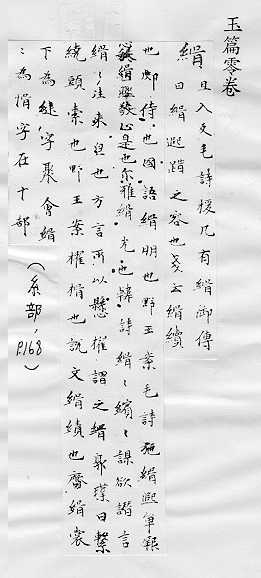 玉篇零卷
緝 且入反毛詩授几有緝御傳
曰緝踧踖之容也箋云緝續
也御侍也國語緝明也野王案毛詩緝熙單
緝熙敬止是也尔雅緝光也韓詩緝〻繽〻謀欲譖言
緝〻往来皃也方言所以懸櫂謂之緝郭璞曰繫
繞頭索也野王案櫂楫也說文緝績也齊緝裳
下為緁字聚會緝
〻為㗱字在十部
(糸部,P.168)